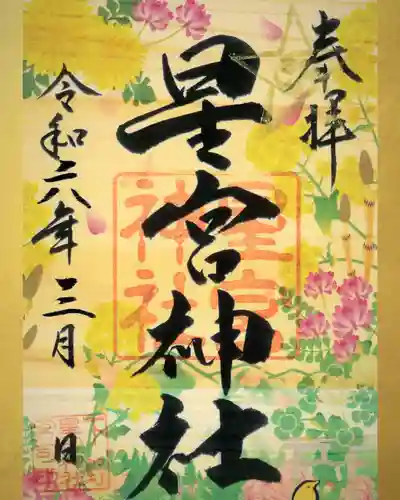 奉拝
星宮神社
令和六年三月
日
星宮
神社